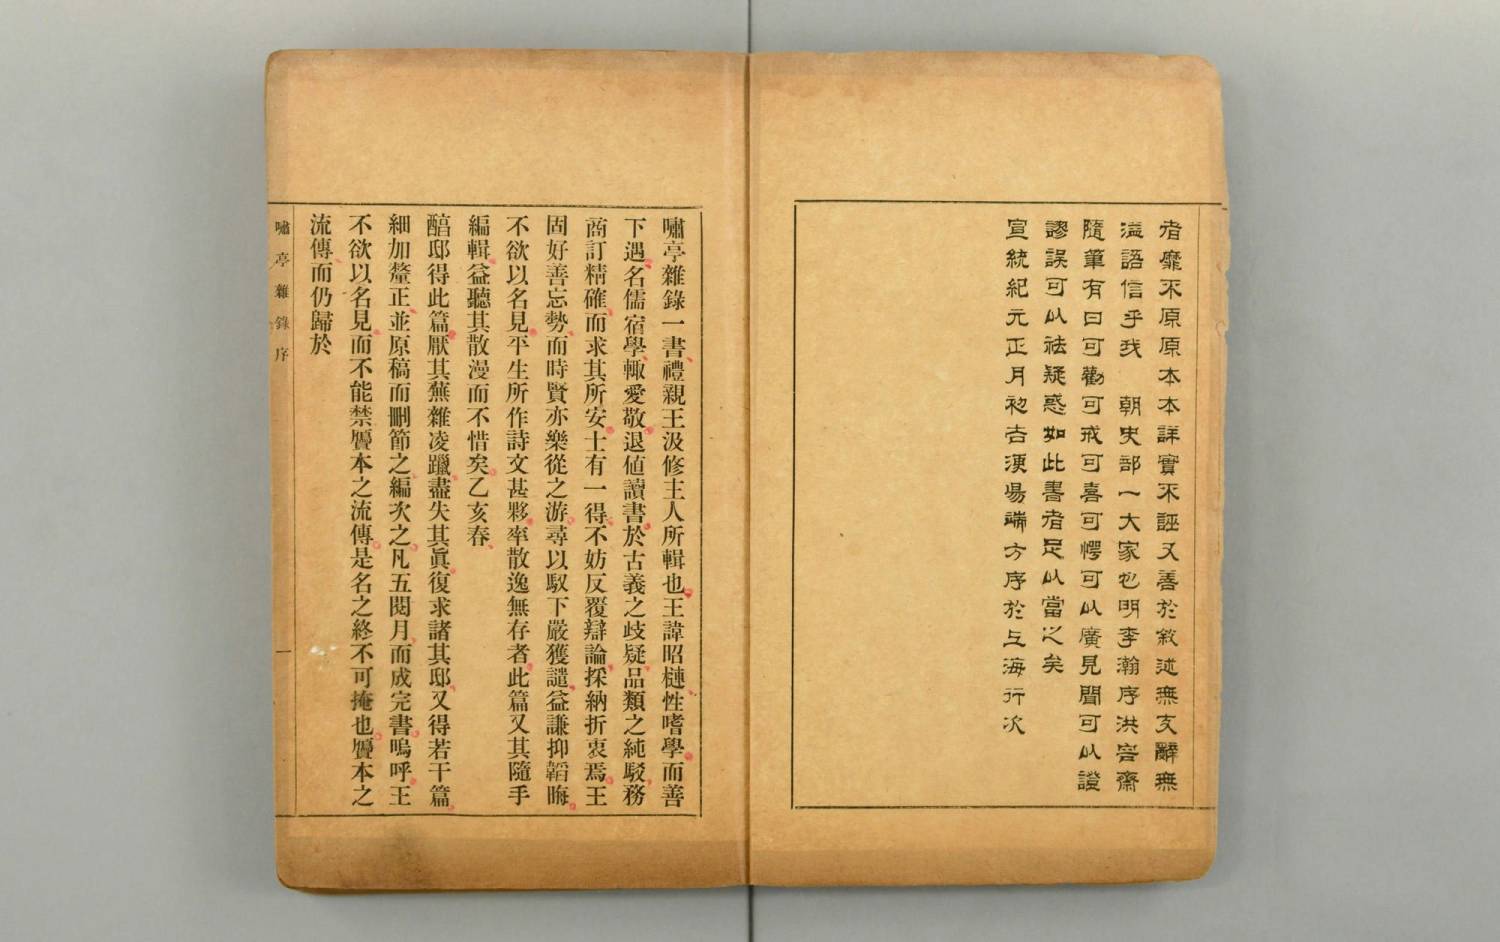 者靡不原原本本詳實不誣又善於敘述無支辭無
溢語信乎我　朝史部一大家也明李瀚序洪容齋
隨筆有曰可勸可戒可喜可愕可以廣見聞可以證
謬誤可以祛疑惑如此書者足以當之矣
宣統紀元正月初吉浭陽端方序於上海行次
嘯亭雜錄一書禮親王汲修主人所輯也王諱昭槤性嗜學而善
下遇名儒宿學輙愛敬退値讀書於古義之歧疑品類之純駁務
商訂精確而求其所安士有一得不妨反覆辯論採納折衷焉王
固好善忘勢而時賢亦樂從之游尋以馭下嚴獲譴益謙抑韜晦
不欲以名見平生所作詩文甚夥率散逸無存者此篇又其隨手
編輯益聽其散漫而不惜矣乙亥春
醕邸得此篇厭其蕪雜凌躐盡失其眞復求諸其邸又得若干篇
細加釐正並原稿而刪節之編次之凡五閱月而成完書嗚呼王
不欲以名見而不能禁贗本之流傳是名之終不可掩也贗本之
流傳而仍歸於
嘯亭雜錄序
一